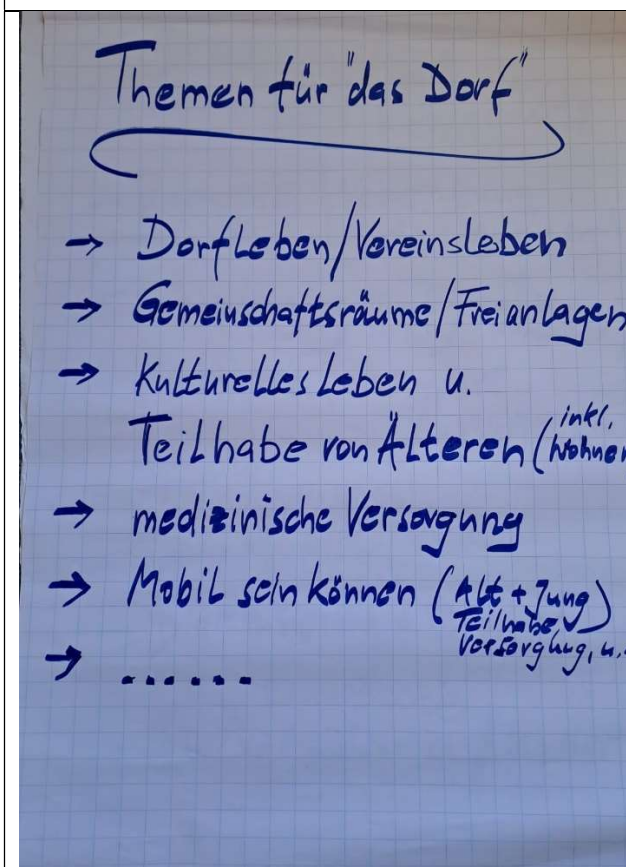 Themen für "das Dorf"
→ Dorfleben/Vereinsleben
→ Gemeinschaftsräume/Freianlagen
→ Kulturelles Leben u.
Teilhabe von Älteren (inkl.
Wohnen
→ medizinische Versorgung
→ Mobil sein können (Alt + Jung)
Teilhabe,
Versorgung, u.
→ ......